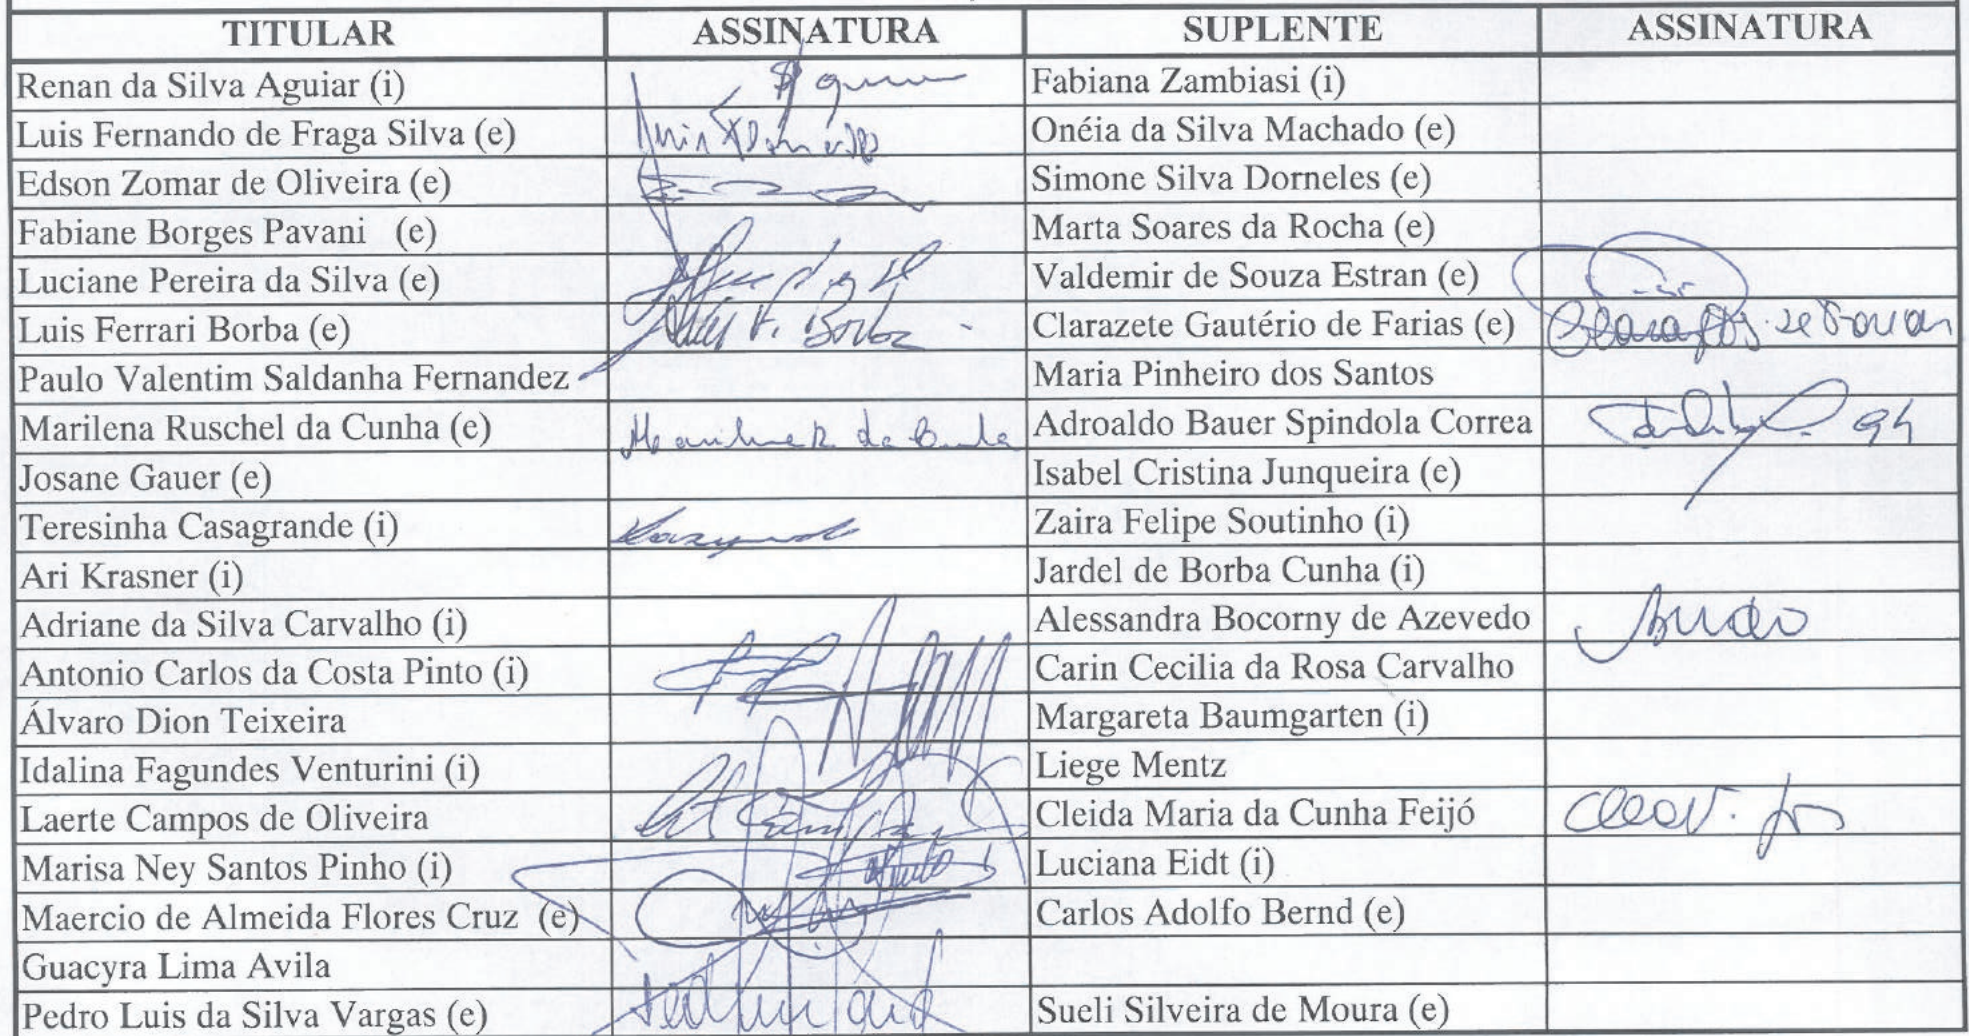 TITULAR ASSINATURA SUPLENTE ASSINATURA
Renan da Silva Aguiar (i) Fabiana Zambiasi (i)
Luis Fernando de Fraga Silva (e) Onéia da Silva Machado (e)
Edson Zomar de Oliveira (e) Simone Silva Dorneles (e)
Fabiane Borges Pavani (e) Marta Soares da Rocha (e)
Luciane Pereira da Silva (e) Valdemir de Souza Estran (e)
Luis Ferrari Borba (e) Luis F. Borba Clarazete Gautério de Farias (e)
Paulo Valentim Saldanha Fernandez Maria Pinheiro dos Santos
Marilena Ruschel da Cunha (e) Adroaldo Bauer Spindola Correa
Josane Gauer (e) Isabel Cristina Junqueira (e)
Teresinha Casagrande (i) Zaira Felipe Soutinho (i)
Ari Krasner (i) Jardel de Borba Cunha (i)
Adriane da Silva Carvalho (i) Alessandra Bocorny de Azevedo
Antonio Carlos da Costa Pinto (i) Carin Cecilia da Rosa Carvalho
Álvaro Dion Teixeira Margareta Baumgarten (i)
Idalina Fagundes Venturini (i) Liege Mentz
Laerte Campos de Oliveira Cleida Maria da Cunha Feijó
Marisa Ney Santos Pinho (i) Luciana Eidt (i)
Maercio de Almeida Flores Cruz (e) Carlos Adolfo Bernd (e)
Guacyra Lima Avila
Pedro Luis da Silva Vargas (e) Sueli Silveira de Moura (e)